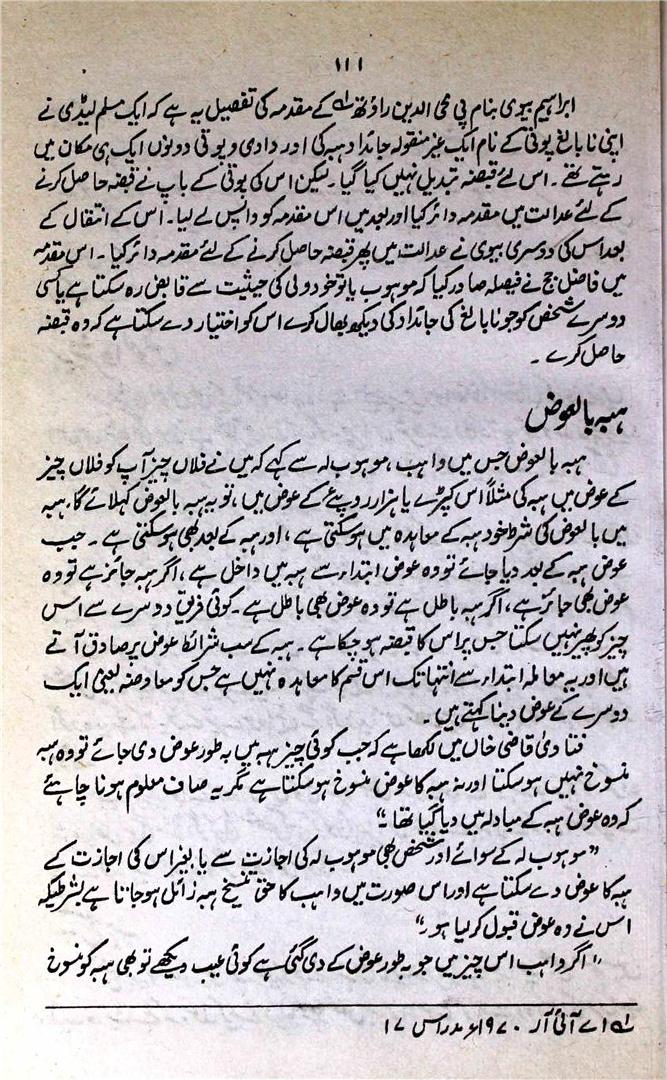 ۱۱۱
ابراہیم بیوی بنام پی محی الدین راؤتھر لہ کے مقدمہ کی تفصیل یہ ہے کہ ایک مسلم لیڈی نے
اپنی نابالغ پوتی کے نام ایک غیر منقولہ جائداد ہبہ کی اور دادی و پوتی دونوں ایک ہی مکان میں
رہتے تھے۔ اس لئے قبضہ تبدیل نہیں کیا گیا۔ لیکن اس کی پوتی کے باپ نے قبضہ حاصل کرنے
کے لئے عدالت میں مقدمہ دائر کیا اور بعد میں اس مقدمہ کو واپس لے لیا۔ اس کے انتقال کے
بعد اس کی دوسری بیوی نے عدالت میں پھر قبضہ حاصل کرنے کے لئے مقدمہ دائر کیا۔ اس مقدمہ
میں فاضل جج نے فیصلہ صادر کیا کہ موہوب یا تو خود ولی کی حیثیت سے قابض رہ سکتا ہے یا کسی
دوسرے شخص کو جو نابالغ کی جائداد کی دیکھ بھال کرے اس کو اختیار دے سکتا ہے کہ وہ قبضہ
حاصل کرے۔
ہبہ بالعوض
ہبہ بالعوض جس میں واہب، موہوب لہ سے کہے کہ میں نے فلاں چیز آپ کو فلاں چیز
کے عوض میں ہبہ کی مثلاً اس کپڑے یا ہزار روپیے کے عوض میں، تو یہ ہبہ بالعوض کہلائے گا، ہبہ
میں بالعوض کی شرط خود ہبہ کے معاہدہ میں ہو سکتی ہے، اور ہبہ کے بعد بھی ہو سکتی ہے۔ جب
عوض ہبہ کے بعد دیا جائے تو وہ عوض ابتداء سے ہبہ میں داخل ہے، اگر ہبہ جائز ہے تو وہ
عوض بھی جائز ہے، اگر ہبہ باطل ہے تو وہ عوض بھی باطل ہے۔ کوئی فریق دوسرے سے اس
چیز کو پھیر نہیں سکتا جس پر اس کا قبضہ ہو چکا ہے۔ ہبہ کے سب شرائط عوض پر صادق آتے
ہیں اور یہ معاملہ ابتداء سے انتہا تک اس قسم کا معاہدہ نہیں ہے جس کو معاوضہ یعنی ایک
دوسرے کے عوض دینا کہتے ہیں۔
فتاویٰ قاضی خاں میں لکھا ہے کہ جب کوئی چیز ہبہ میں بہ طور عوض دی جائے تو وہ ہبہ
منسوخ نہیں ہو سکتا اور نہ ہبہ کا عوض منسوخ ہو سکتا ہے مگر یہ صاف معلوم ہونا چاہئے
کہ وہ عوض ہبہ کے مبادلہ میں دیا گیا تھا۔"
"موہوب لہ کے سوائے اور شخص بھی موہوب لہ کی اجازت سے یا بغیر اس کی اجازت کے
ہبہ کا عوض دے سکتا ہے اور اس صورت میں واہب کا حق تنسیخ ہبہ زائل ہو جاتا ہے بشرطیکہ
اس نے وہ عوض قبول کر لیا ہو۔"
"اگر واہب اس چیز میں جو بہ طور عوض کے دی گئی ہے کوئی عیب دیکھے تو بھی ہبہ کو منسوخ
لہ اے آئی آر ۱۹۷۰ء مدراس ۱۷